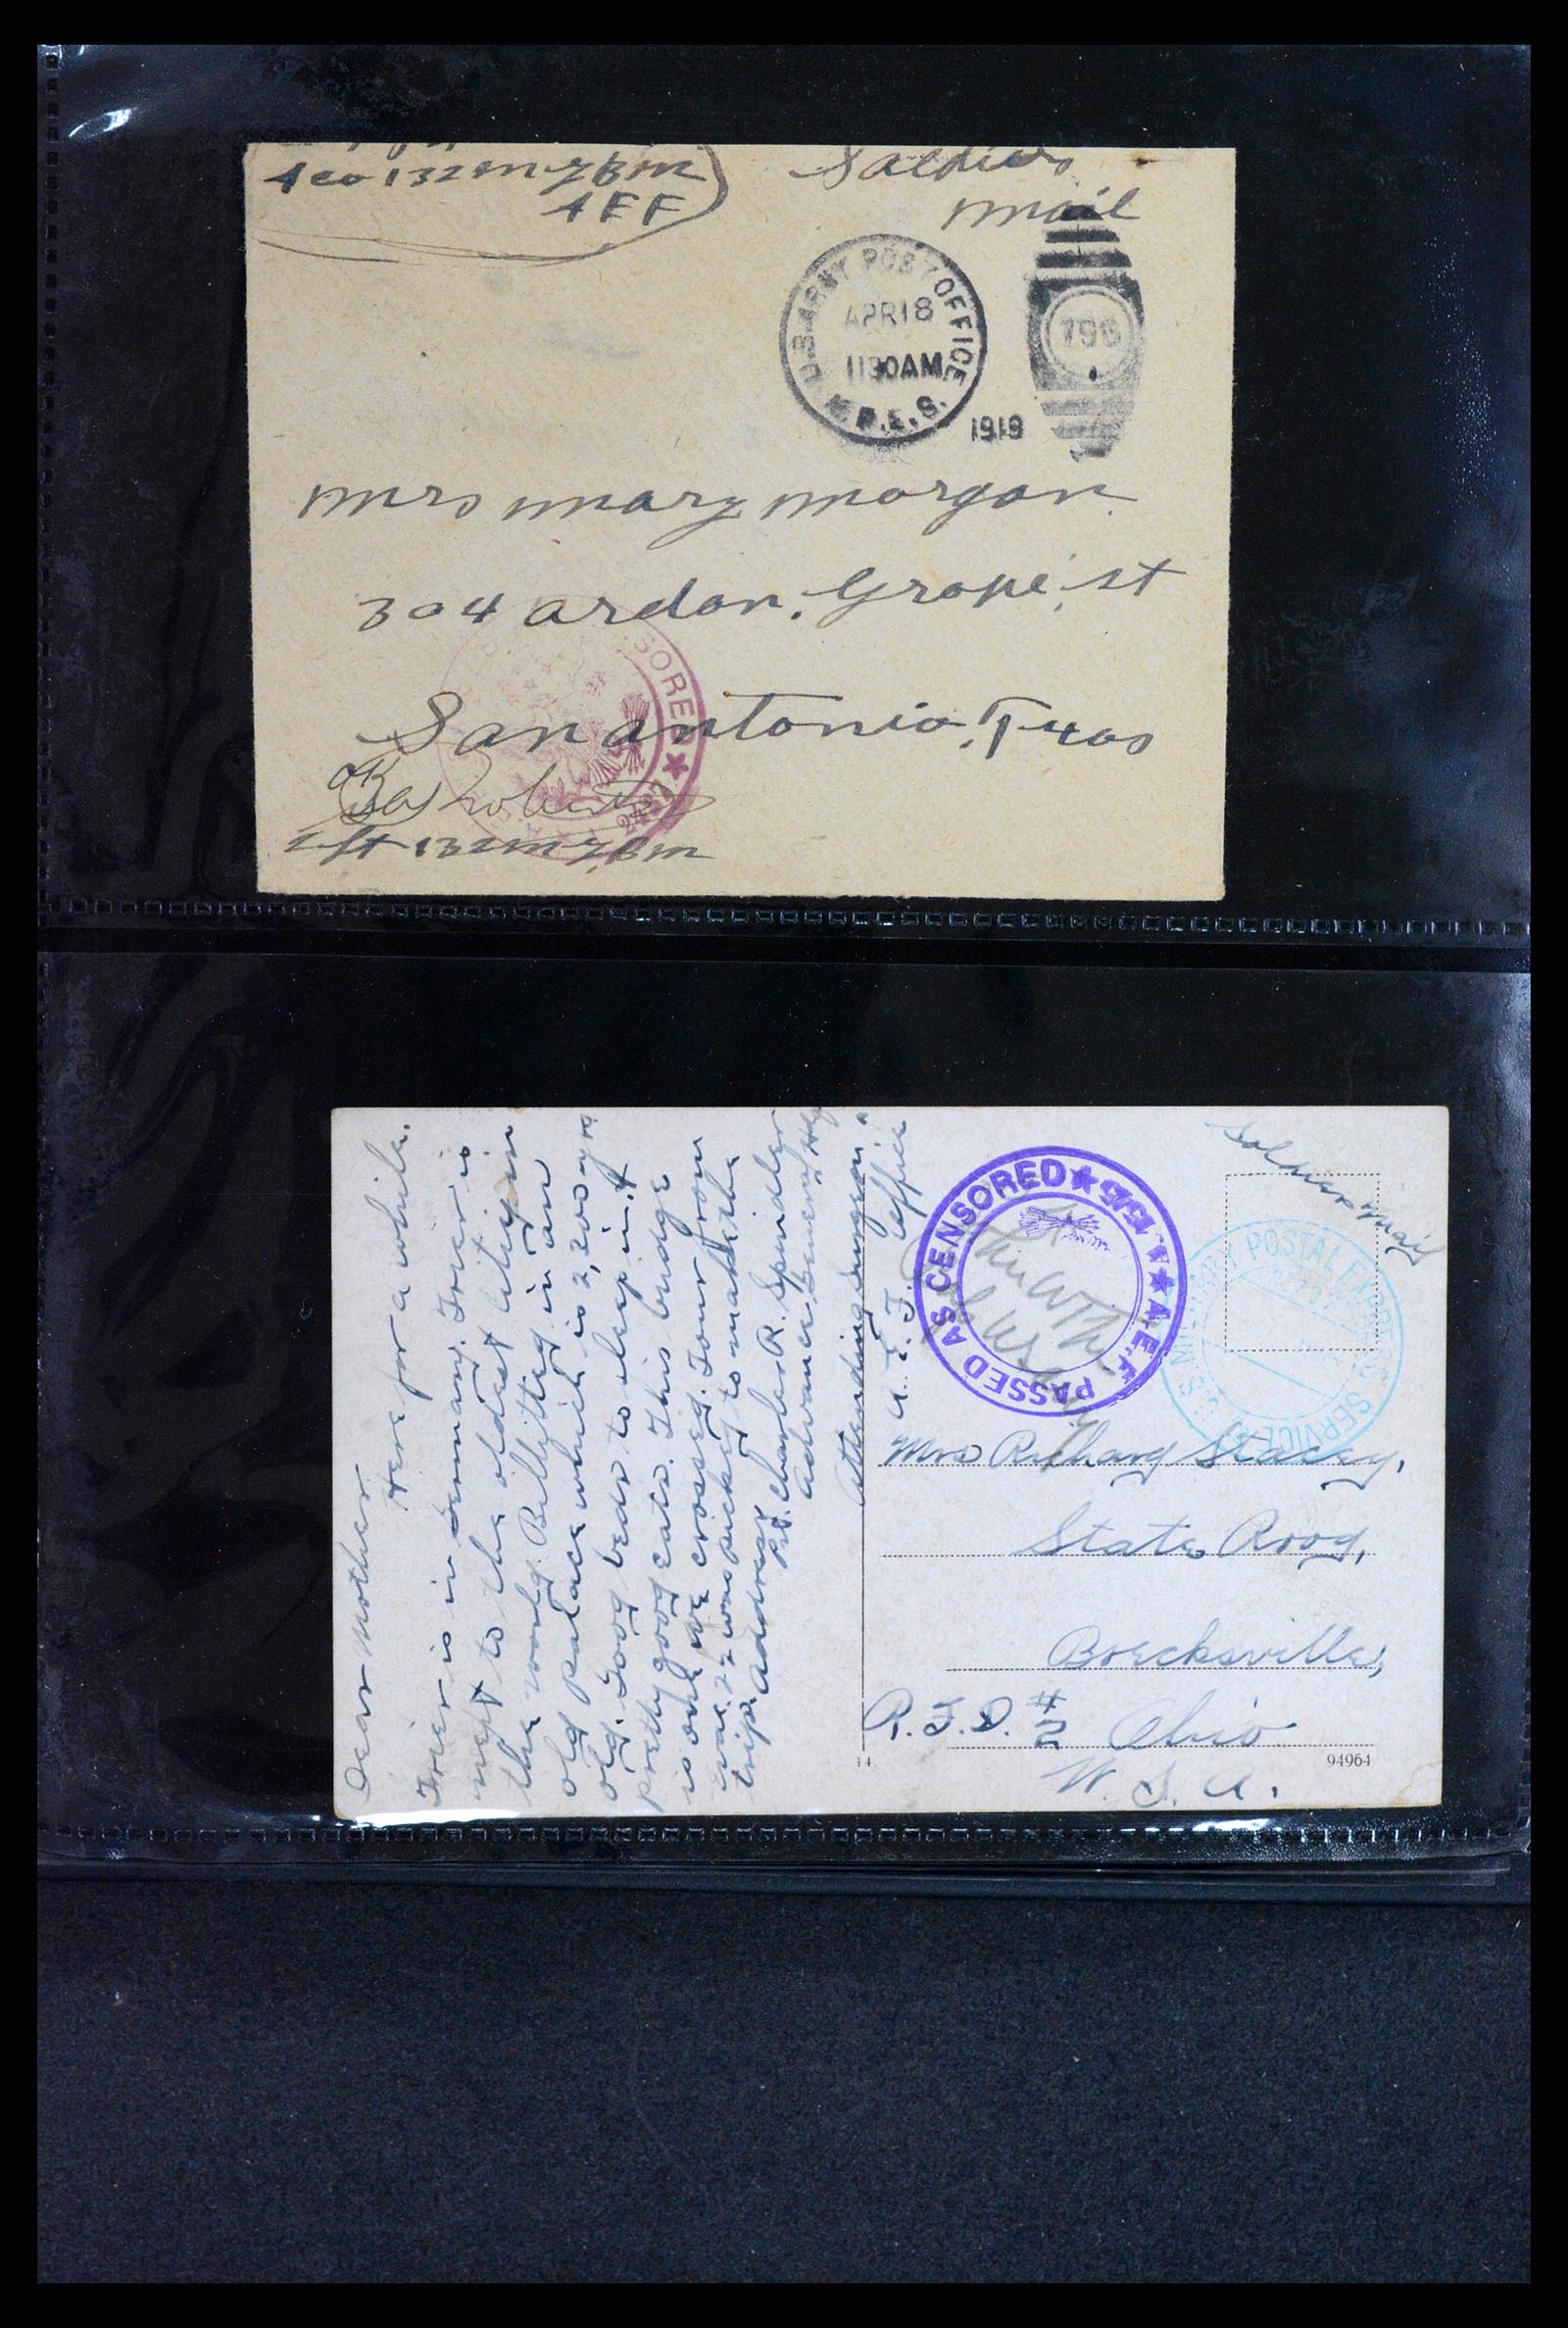 A Co 132 M G Bn
A E F
Soldiers
mail
U.S. ARMY POST OFFICE
M.P.E.S.
APR 18
1130AM
1919
796
Mrs Mary Morgan
304 ardon. Grape. st
San antonio, Texas
OK
Roberts
132 M G Bn
SORED ★
Dear Mother
Here for a while.
Trier is in Germany. Trier is
next to the oldest city in
the world. Billetted in an
old palace which is 2,200 yrs
old. Good beds to sleep in. &
pretty good eats. This bridge
is one we crossed. Tour from
22 was picked to make the
trip. Address
Pvt. Charles R. Spindler
Advance General Hq
Attending surgeon.
A. E. F. Office
PASSED AS CENSORED ★ ★ A.E.F.
Soldiers Mail
MILITARY POSTAL EXPRESS SERVICE
Mrs Richard Stacey,
State Road,
Brecksville,
R.F.D. # 2 Ohio
U. S. A.
14
94964